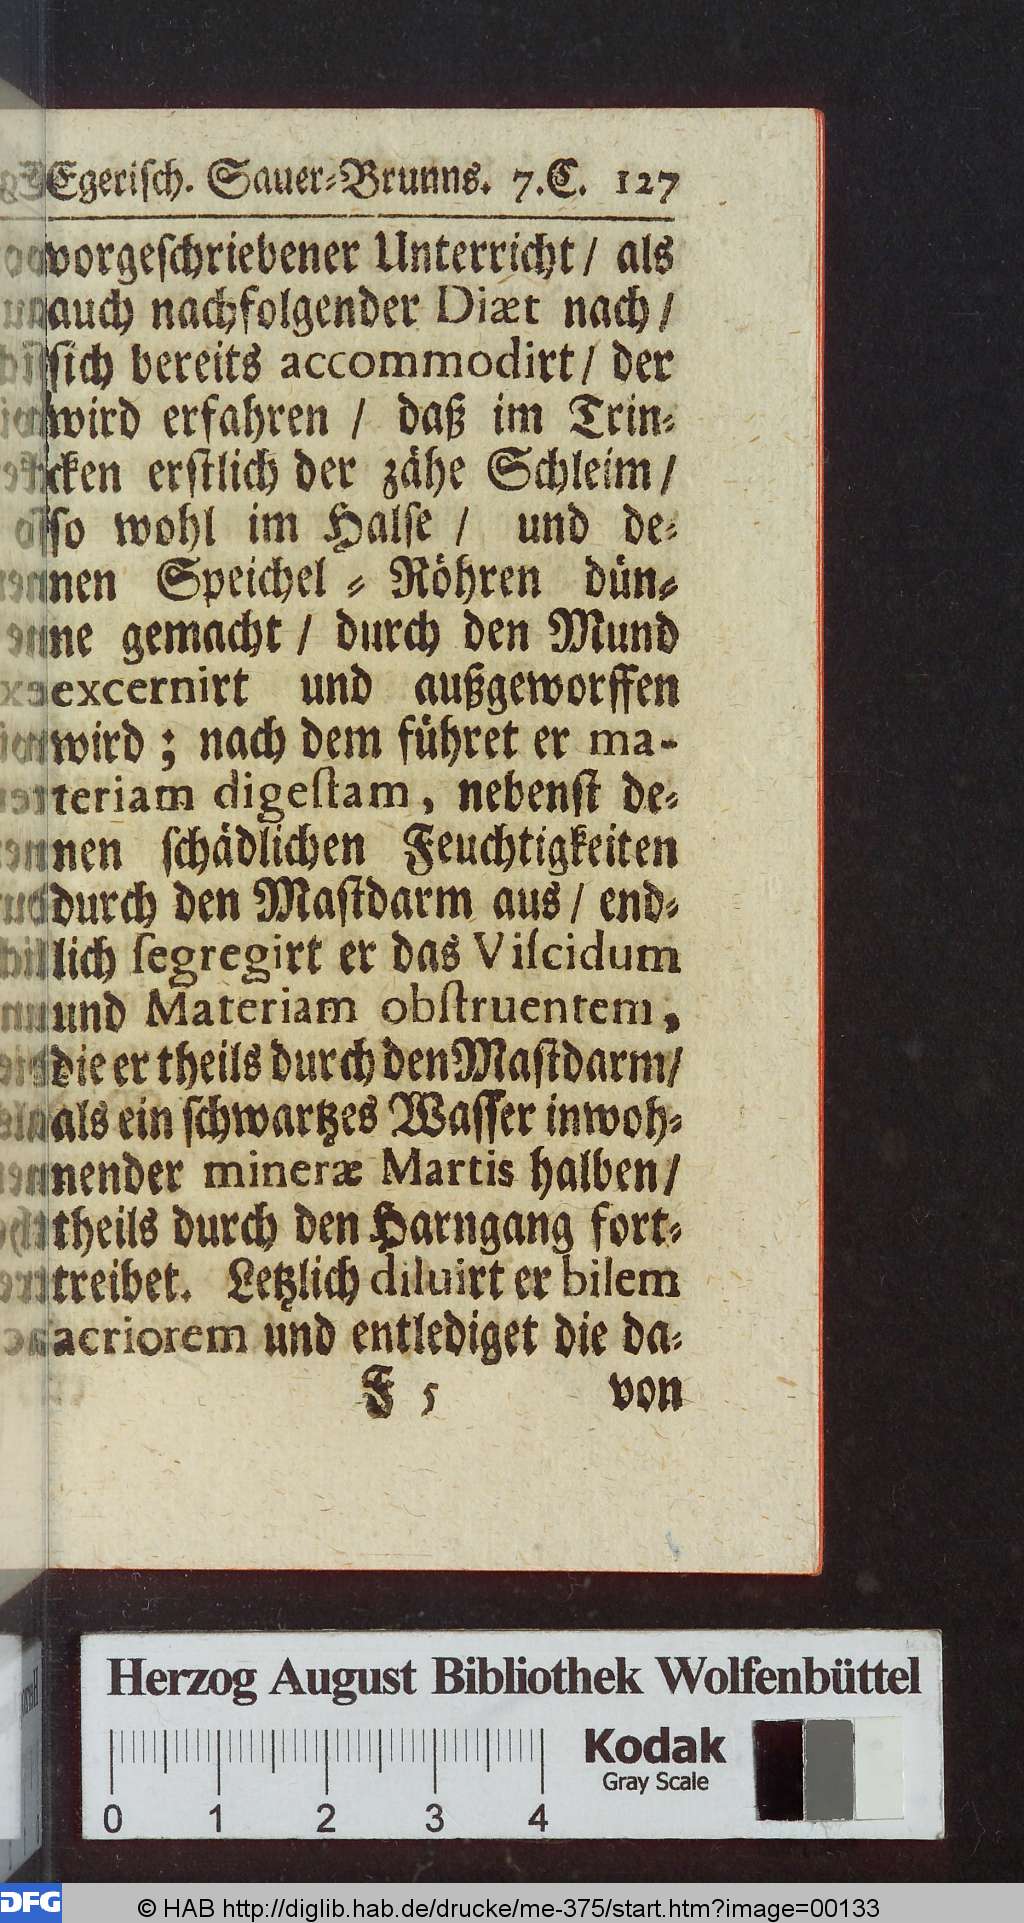 Egerisch. Sauer-Brunns. 7.C. 127
vorgeschriebener Unterricht / als
auch nachfolgender Diæt nach /
sich bereits accommodirt / der
wird erfahren / daß im Trin-
cken erstlich der zähe Schleim /
so wohl im Halse / und de-
nen Speichel - Röhren dün-
ne gemacht / durch den Mund
excernirt und außgeworffen
wird ; nach dem führet er ma-
teriam digestam, nebenst de-
nen schädlichen Feuchtigkeiten
durch den Mastdarm aus / end-
lich segregirt er das Viscidum
und Materiam obstruentem,
die er theils durch den Mastdarm /
als ein schwartzes Wasser inwoh-
nender mineræ Martis halben /
theils durch den Harngang fort-
treibet. Letzlich diluirt er bilem
acriorem und entlediget die da-
F 5 von
Herzog August Bibliothek Wolfenbüttel
Kodak
Gray Scale
0 1 2 3 4
DFG © HAB http://diglib.hab.de/drucke/me-375/start.htm?image=00133